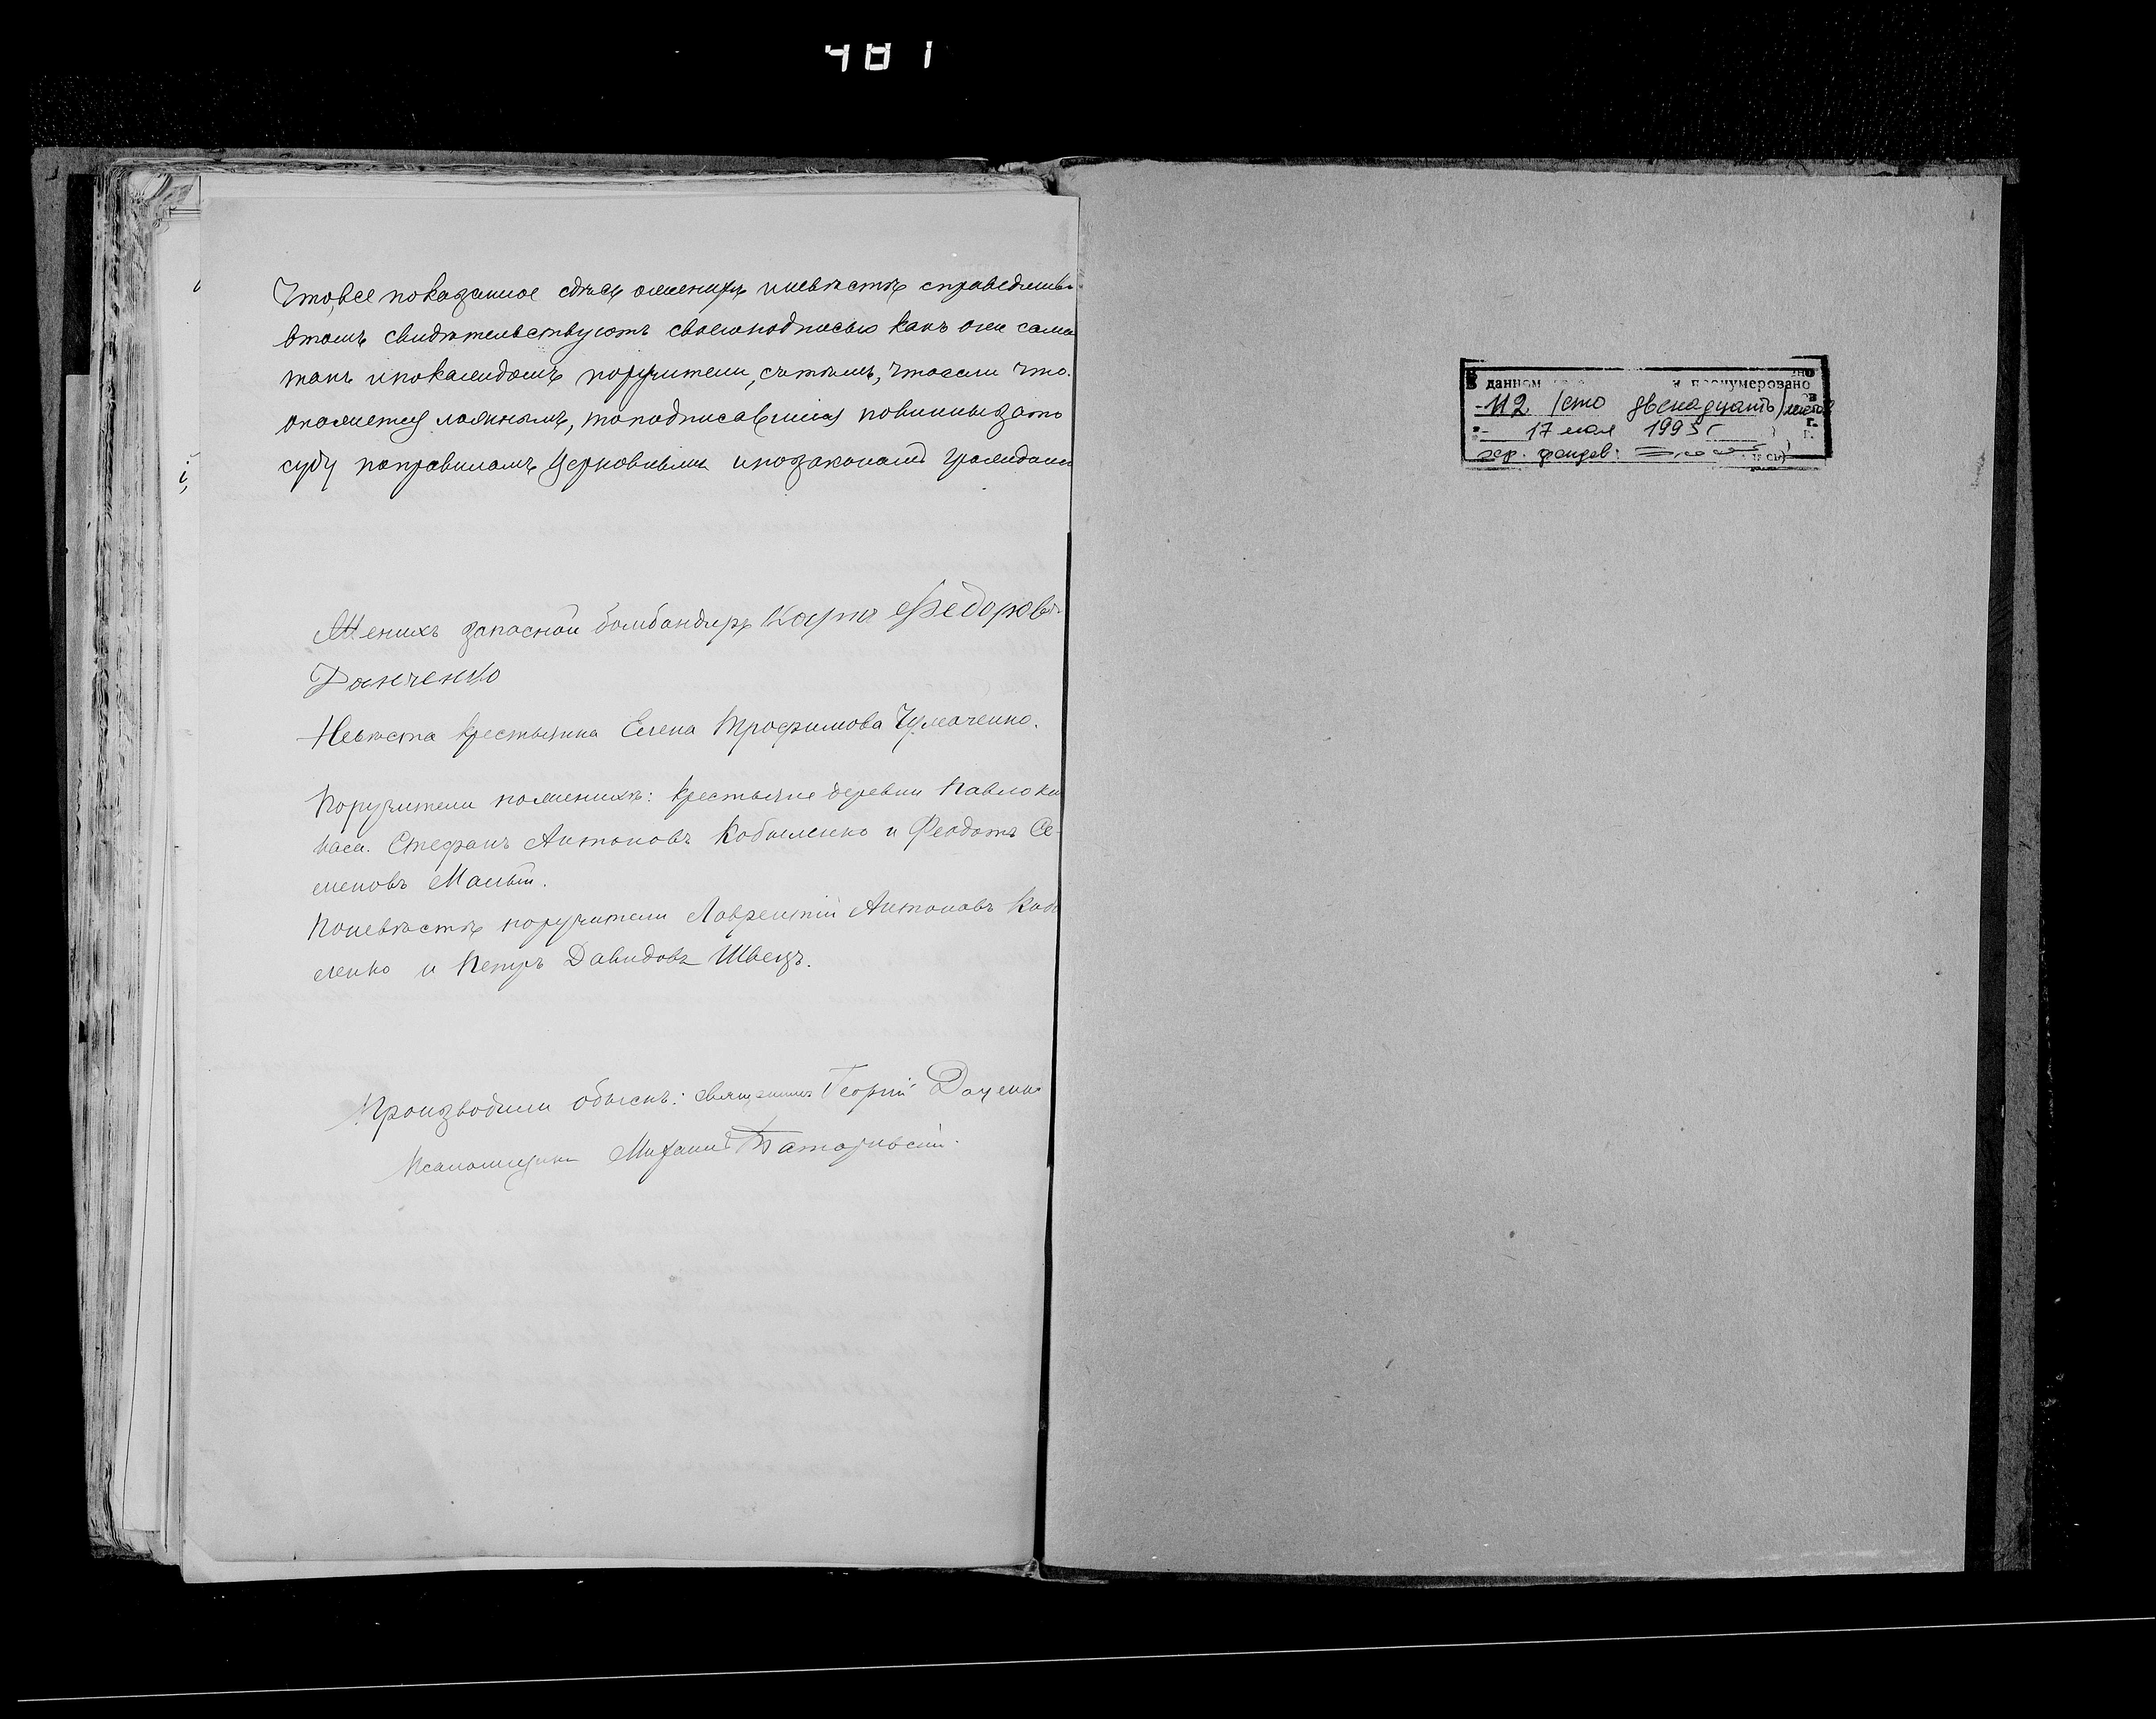 481
Что, все показанное сдѣсь оженихѣ иневѣстѣ справедливо
втомъ свидѣтельствуютъ своеюподписью какъ они сами
такъ ипокаждомъ поручители, стѣмъ, чтоесли что.
окажется ложнымъ, топодписавшися повиннызато
суду поправиламъ Церковнымъ ипозаконамъ граждан
Женихъ запасной бомбандиръ Карпъ Федоровъ
Данченко
Невѣста крестьянка Елена Трофимова Чумаченко.
Поручители поженихѣ: крестьяне деревни Павло
Стефанъ Антоновъ Кобыленко и Феодотъ Се-
меновъ Малый.
Поневѣстѣ поручители Лаврентій Антоновъ Кобы
ленко и Петръ Давидовъ Швецъ.
Производили обыскъ: священникъ Георгій Доценко
Псаломщикъ Михаилъ
В данном пронумеровано
-112 /сто двенадцать/ листов
17 мая 1995 г
хр. фондов: